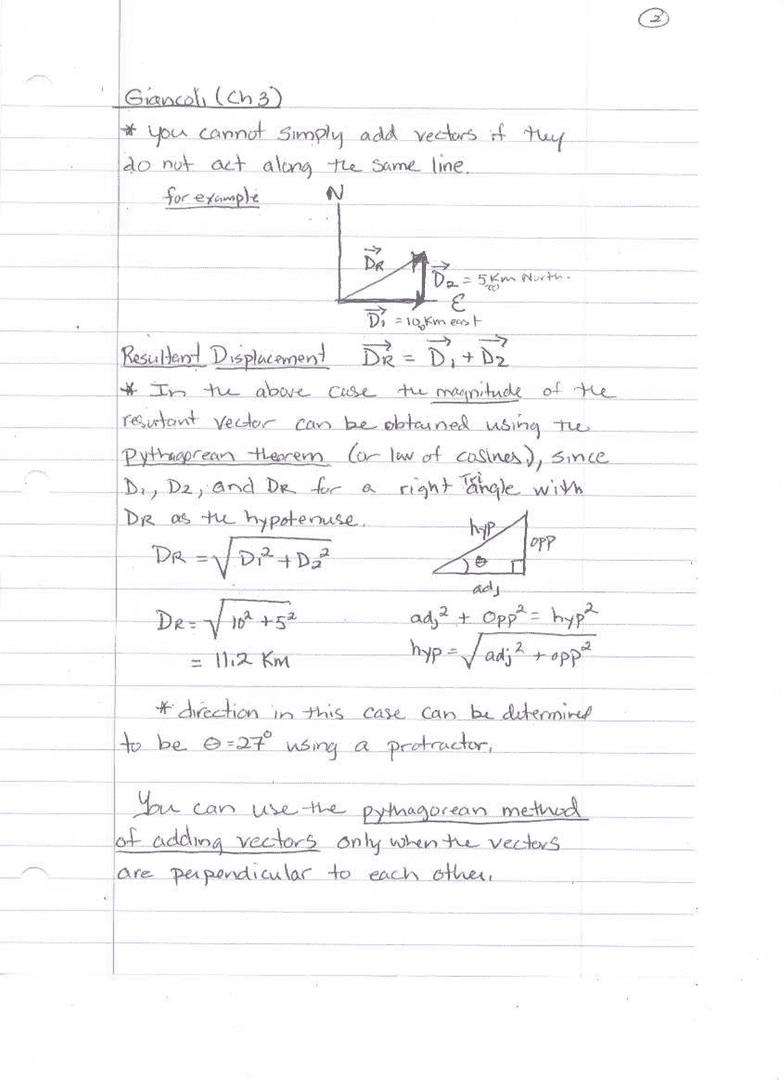 2
Giancoli (Ch 3)
* you cannot simply add vectors if they
do not act along the same line.
for example
N
D⃗R
D⃗2 = 5 km North.
E
D⃗1 = 10 km east
Resultant Displacement D⃗R = D⃗1 + D⃗2
* In the above case the magnitude of the
resultant vector can be obtained using the
Pythagorean theorem (or law of cosines), since
D1, D2, and DR for a right Triangle with
DR as the hypotenuse.
hyp
opp
θ
adj
DR = √(D1² + D2²)
DR = √(10² + 5²)
= 11.2 Km
adj² + opp² = hyp²
hyp = √(adj² + opp²)
* direction in this case can be determined
to be θ = 27° using a protractor.
You can use the pythagorean method
of adding vectors only when the vectors
are perpendicular to each other.